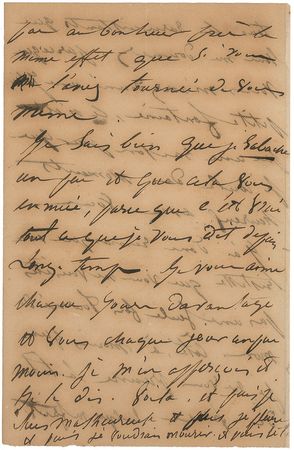 pas au bonheur que le
même effet que si vous
l'aviez tournée et vous
même.
Je sais bien que je rabache
un peu et que cela vous
ennuie, parce que c'est
tout ce que je vous dit depuis
long-temps. Je vous aime
chaque jour davantage
et vous chaque jour un peu
moins. je m'en apperçois et
je le dis. Voila. et puis je
suis malheureux et puis je
et puis je voudrais mourir. et puis